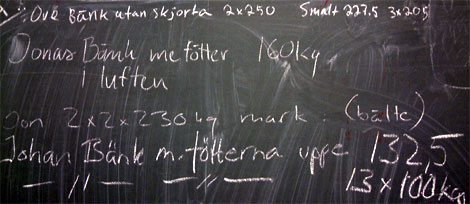 Ove Bänk utan skjorta 2x250 Smalt 227.5 3x205
Jonas Bänk me fötter 160kg
i luften
Jon 2x2x230kg mark (bälte)
Johan Bänk m. fötterna uppe 132,5
— // — — // — 13 x 100kg